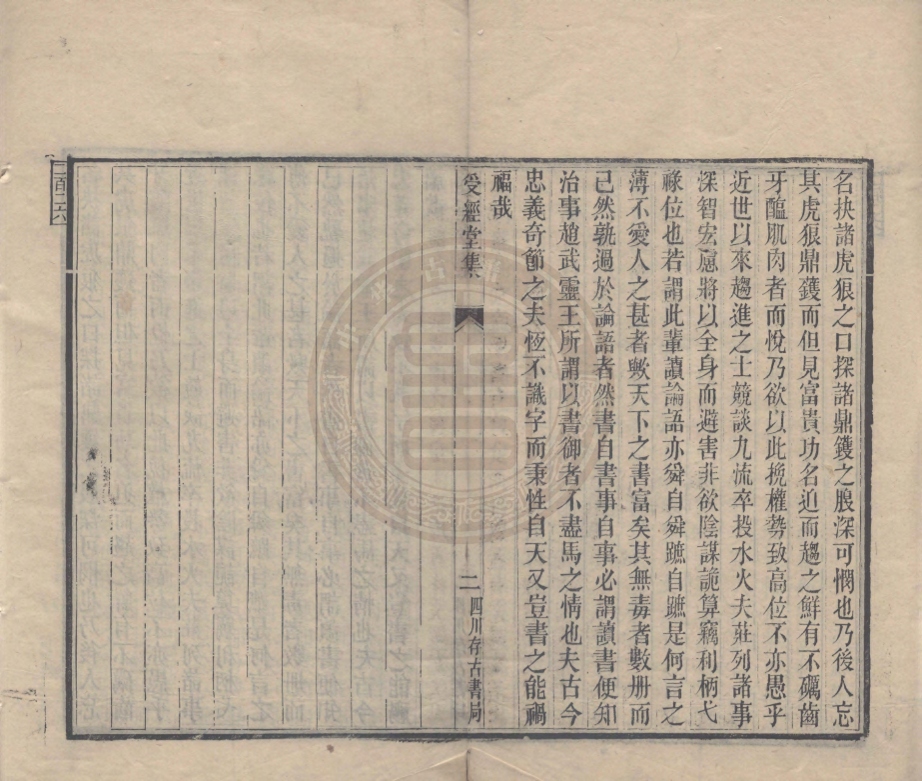 名抉諸虎狼之口探諸鼎鑊之脤深可憫也乃後人忘
其虎狼鼎鑊而但見富貴功名迫而趨之鮮有不礪齒
牙醢肌肉者而悅乃欲以此挽權勢致高位不亦愚乎
近世以來趨進之士競談九流卒投水火夫莊列諸事
深智宏慮將以全身而避害非欲陰謀詭算竊利柄弋
祿位也若謂此輩讀論語亦舜自舜蹠自蹠是何言之
薄不愛人之甚者歟天下之書富矣其無毒者數册而
已然孰過於論語者然書自書事自事必謂讀書便知
治事趙武靈王所謂以書御者不盡馬之情也夫古今
忠義奇節之夫恆不識字而秉性自天又豈書之能禍
福哉
受經堂集
二
四川存古書局